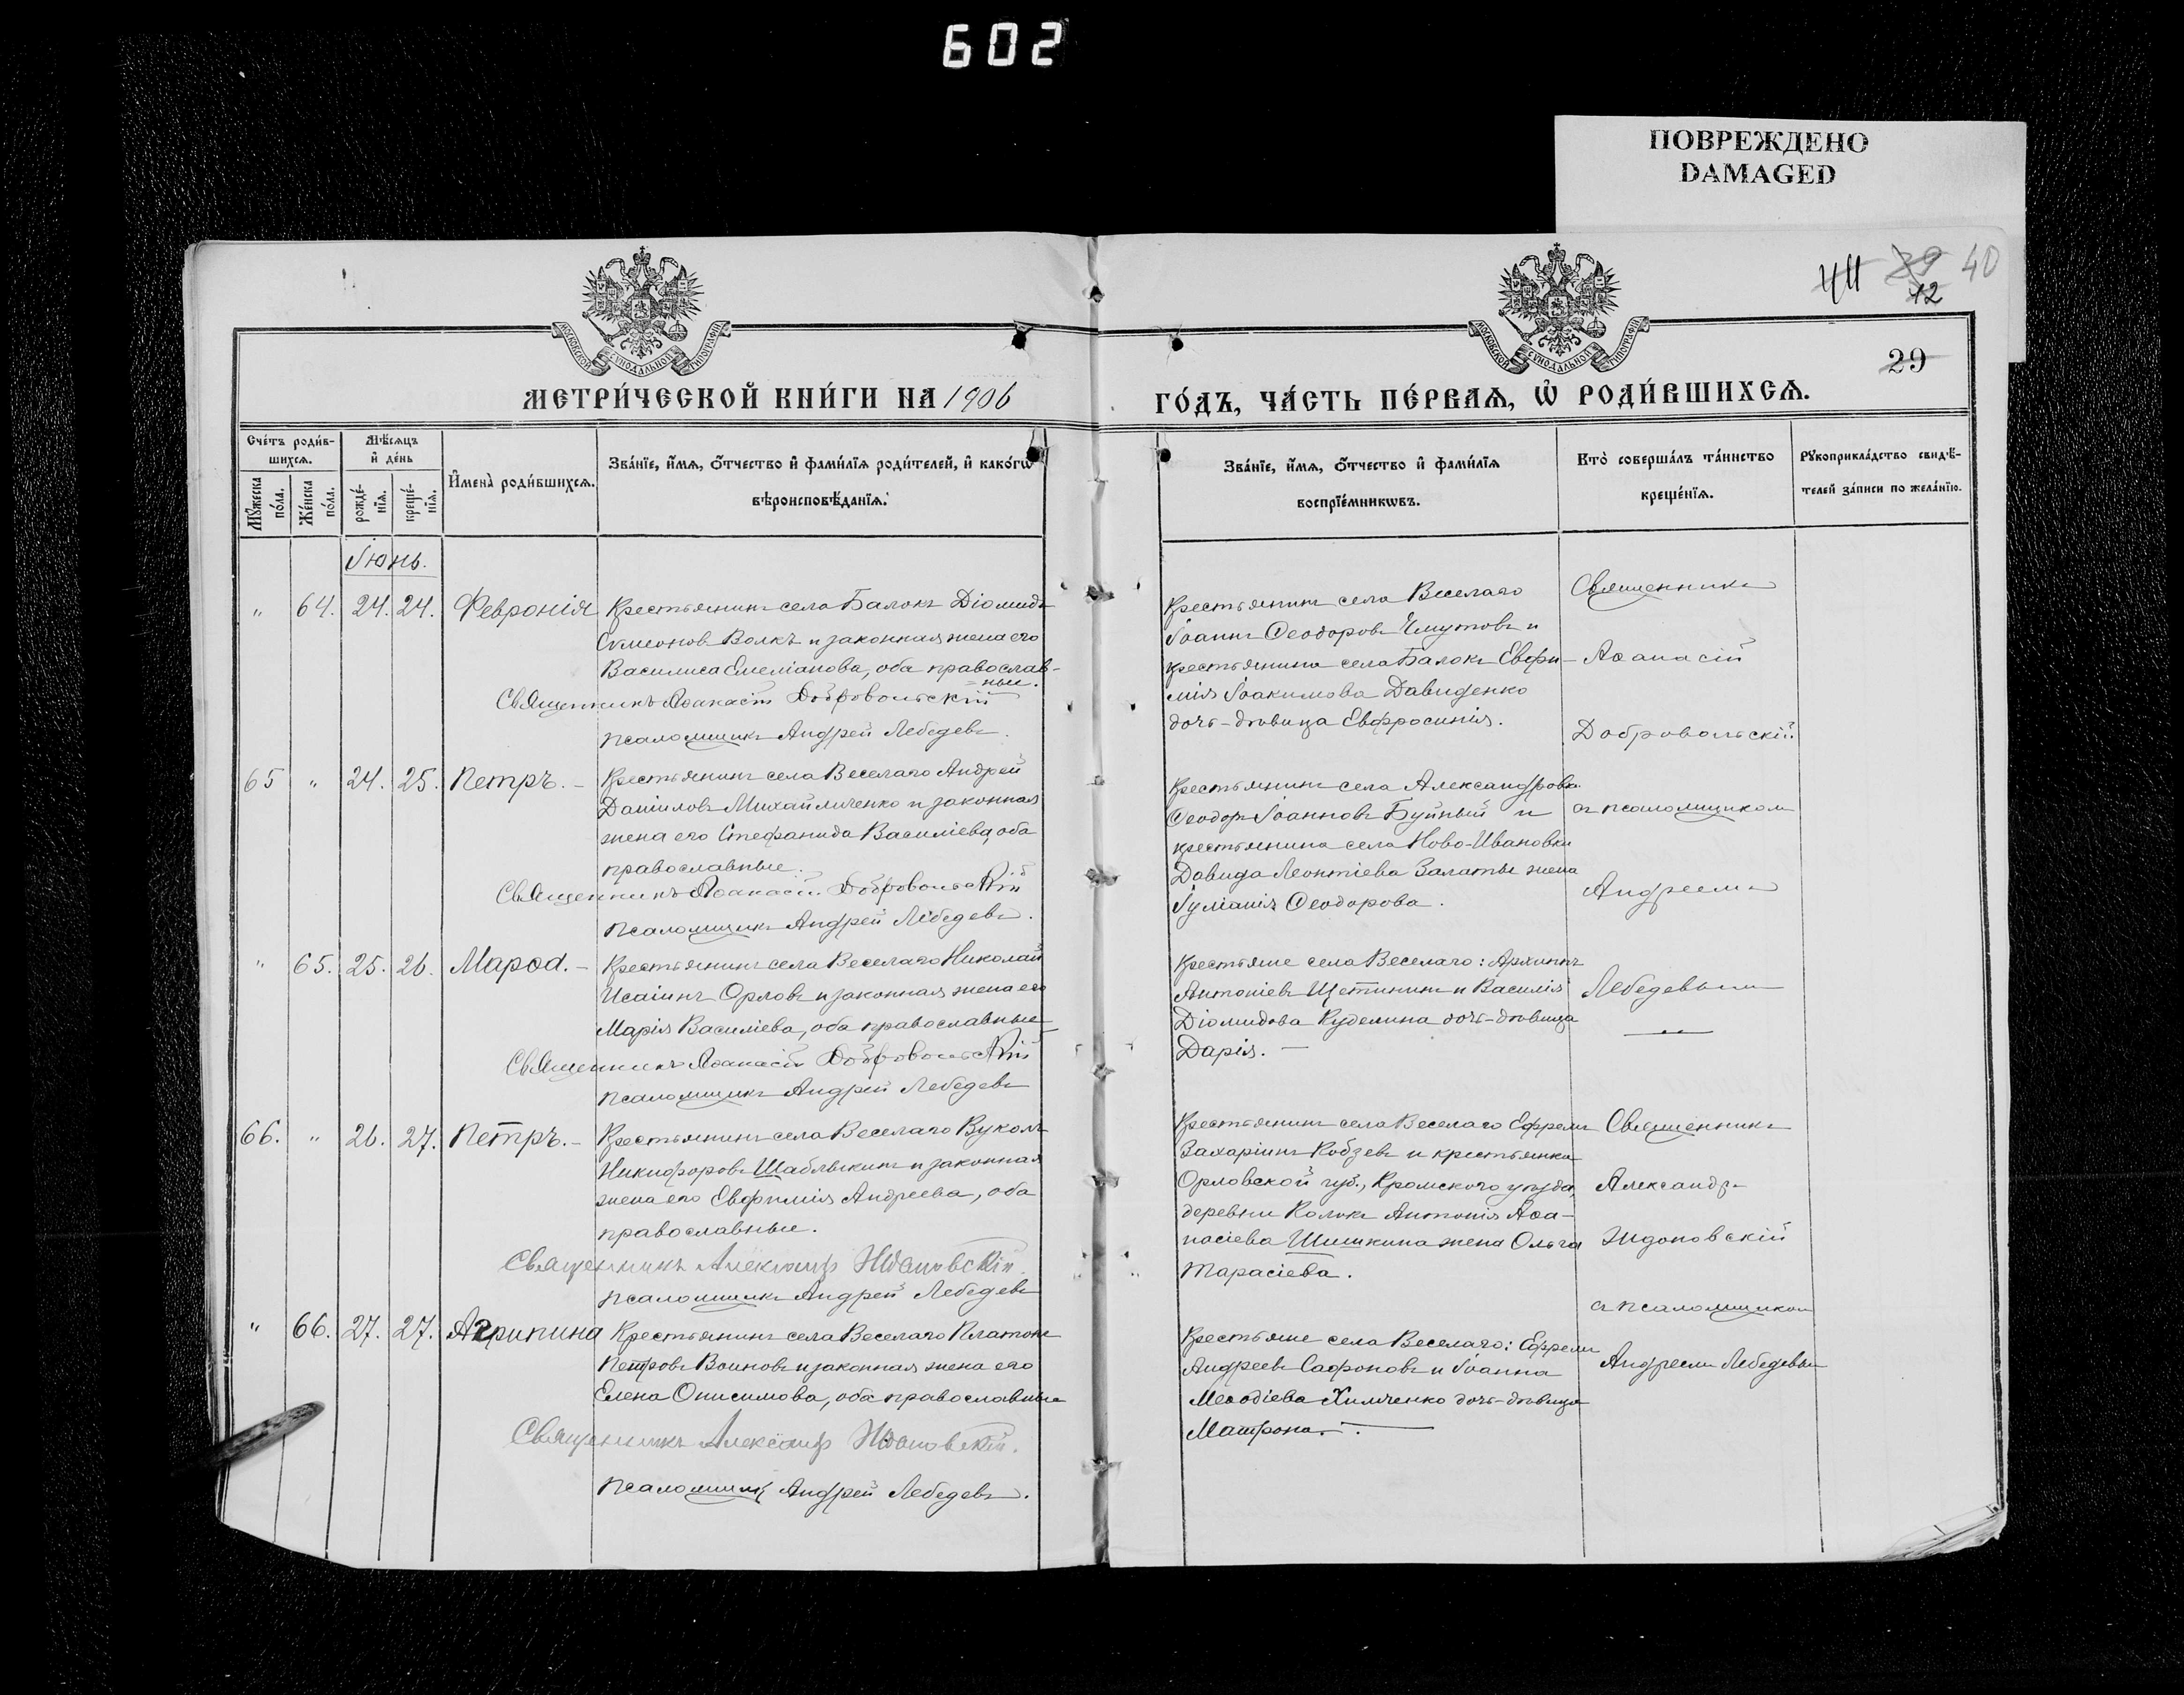 602
ПОВРЕЖДЕНО
DAMAGED
41 39 40
12
29
МОСКОВСКОЙ СѴНОДАЛЬНОЙ ТИПОГРАФІИ
МОСКОВСКОЙ СѴНОДАЛЬНОЙ ТИПОГРАФІИ
МЕТРИ́ЧЕСКОЙ КНИ́ГИ НА 1906
ГО́ДЪ, ЧА́СТЬ ПЕ́РВАѦ, Ѿ РОДИ́ВШИХСѦ.
Сче́тъ роди́в-
шихсѧ.
Мѣ́сѧцъ
и҆ де́нь
Мꙋ́жеска по́ла.
Же́нска по́ла.
рожде́-
нїѧ.
креще́-
нїѧ.
И҆мена̀ роди́вшихсѧ.
Зва́нїе, и҆́мѧ, ѻ҆́тчество и҆ фами́лїѧ роди́телей, и҆ како́гѡ
вѣроисповѣ́данїѧ.
Зва́нїе, и҆́мѧ, ѻ҆́тчество и҆ фами́лїѧ
воспрїе́мникѡвъ.
Кто̀ соверша́лъ та́инство
креще́нїѧ.
Рꙋкоприкла́дство свидѣ́-
телей за́писи по жела́нїю.
Іюнь.
" 64. 24. 24. Февронія
Крестьянинъ села Балокъ Діомидъ
Сѵмеоновъ Волкъ и законная жена его
Василиса Емеліанова, оба православ-
ные.
Священникъ Аѳанасій Добровольскій
псаломщикъ Андрей Лебедевъ.
Крестьянинъ села Веселаго
Іоаннъ Ѳеодоровъ Чмутовъ и
крестьянина села Балокъ Евѳи-
мія Іоакимова Давиденко
дочь-дѣвица Евфросинія.
Священникъ
Аѳанасій
Добровольскій
65 " 24. 25. Петръ. -
Крестьянинъ села Веселаго Андрей
Даніиловъ Михайличенко и законная
жена его Стефанида Василіева, оба
православные.
Священникъ Аѳанасій Добровольскій
псаломщикъ Андрей Лебедевъ.
Крестьянинъ села Александровки
Ѳеодоръ Іоанновъ Буйный и
крестьянина села Ново-Ивановки
Давида Леонтіева Залаты жена
Іуліанія Ѳеодорова.
съ псаломщикомъ
Андреемъ
" 65. 25. 26. Марѳа. -
Крестьянинъ села Веселаго Николай
Исаіинъ Орловъ и законная жена его
Марія Василіева, оба православные
Священникъ Аѳанасій Добровольскій
псаломщикъ Андрей Лебедевъ
Крестьяне села Веселаго: Архиппъ
Антоніевъ Щетининъ и Василія
Діомидова Куделина дочь-дѣвица
Дарія. -
Лебедевымъ
66. " 26. 27. Петръ. -
Крестьянинъ села Веселаго Вуколъ
Никифоровъ Шаблыкинъ и законная
жена его Евфимія Андреева, оба
православные.
Священникъ Александръ Ждановскій.
псаломщикъ Андрей Лебедевъ
Крестьянинъ села Веселаго Ефремъ
Захаріинъ Кобзевъ и крестьянка
Орловской губ., Кромского уѣзда,
деревни Колокъ Антонія Аѳа-
насіева Шишкина жена Ольга
Тарасіева.
Священникъ
Александръ
Ждановскій
съ псаломщикомъ
Андреемъ Лебедевымъ
" 66. 27. 27. Агрипина
Крестьянинъ села Веселаго Платонъ
Петровъ Воиновъ и законная жена его
Елена Онисимова, оба православные
Священникъ Александръ Ждановскій.
псаломщикъ Андрей Лебедевъ.
Крестьяне села Веселаго: Ефремъ
Андреевъ Сафоновъ и Іоанна
Меѳодіева Химченко дочь-дѣвица
Матрона.